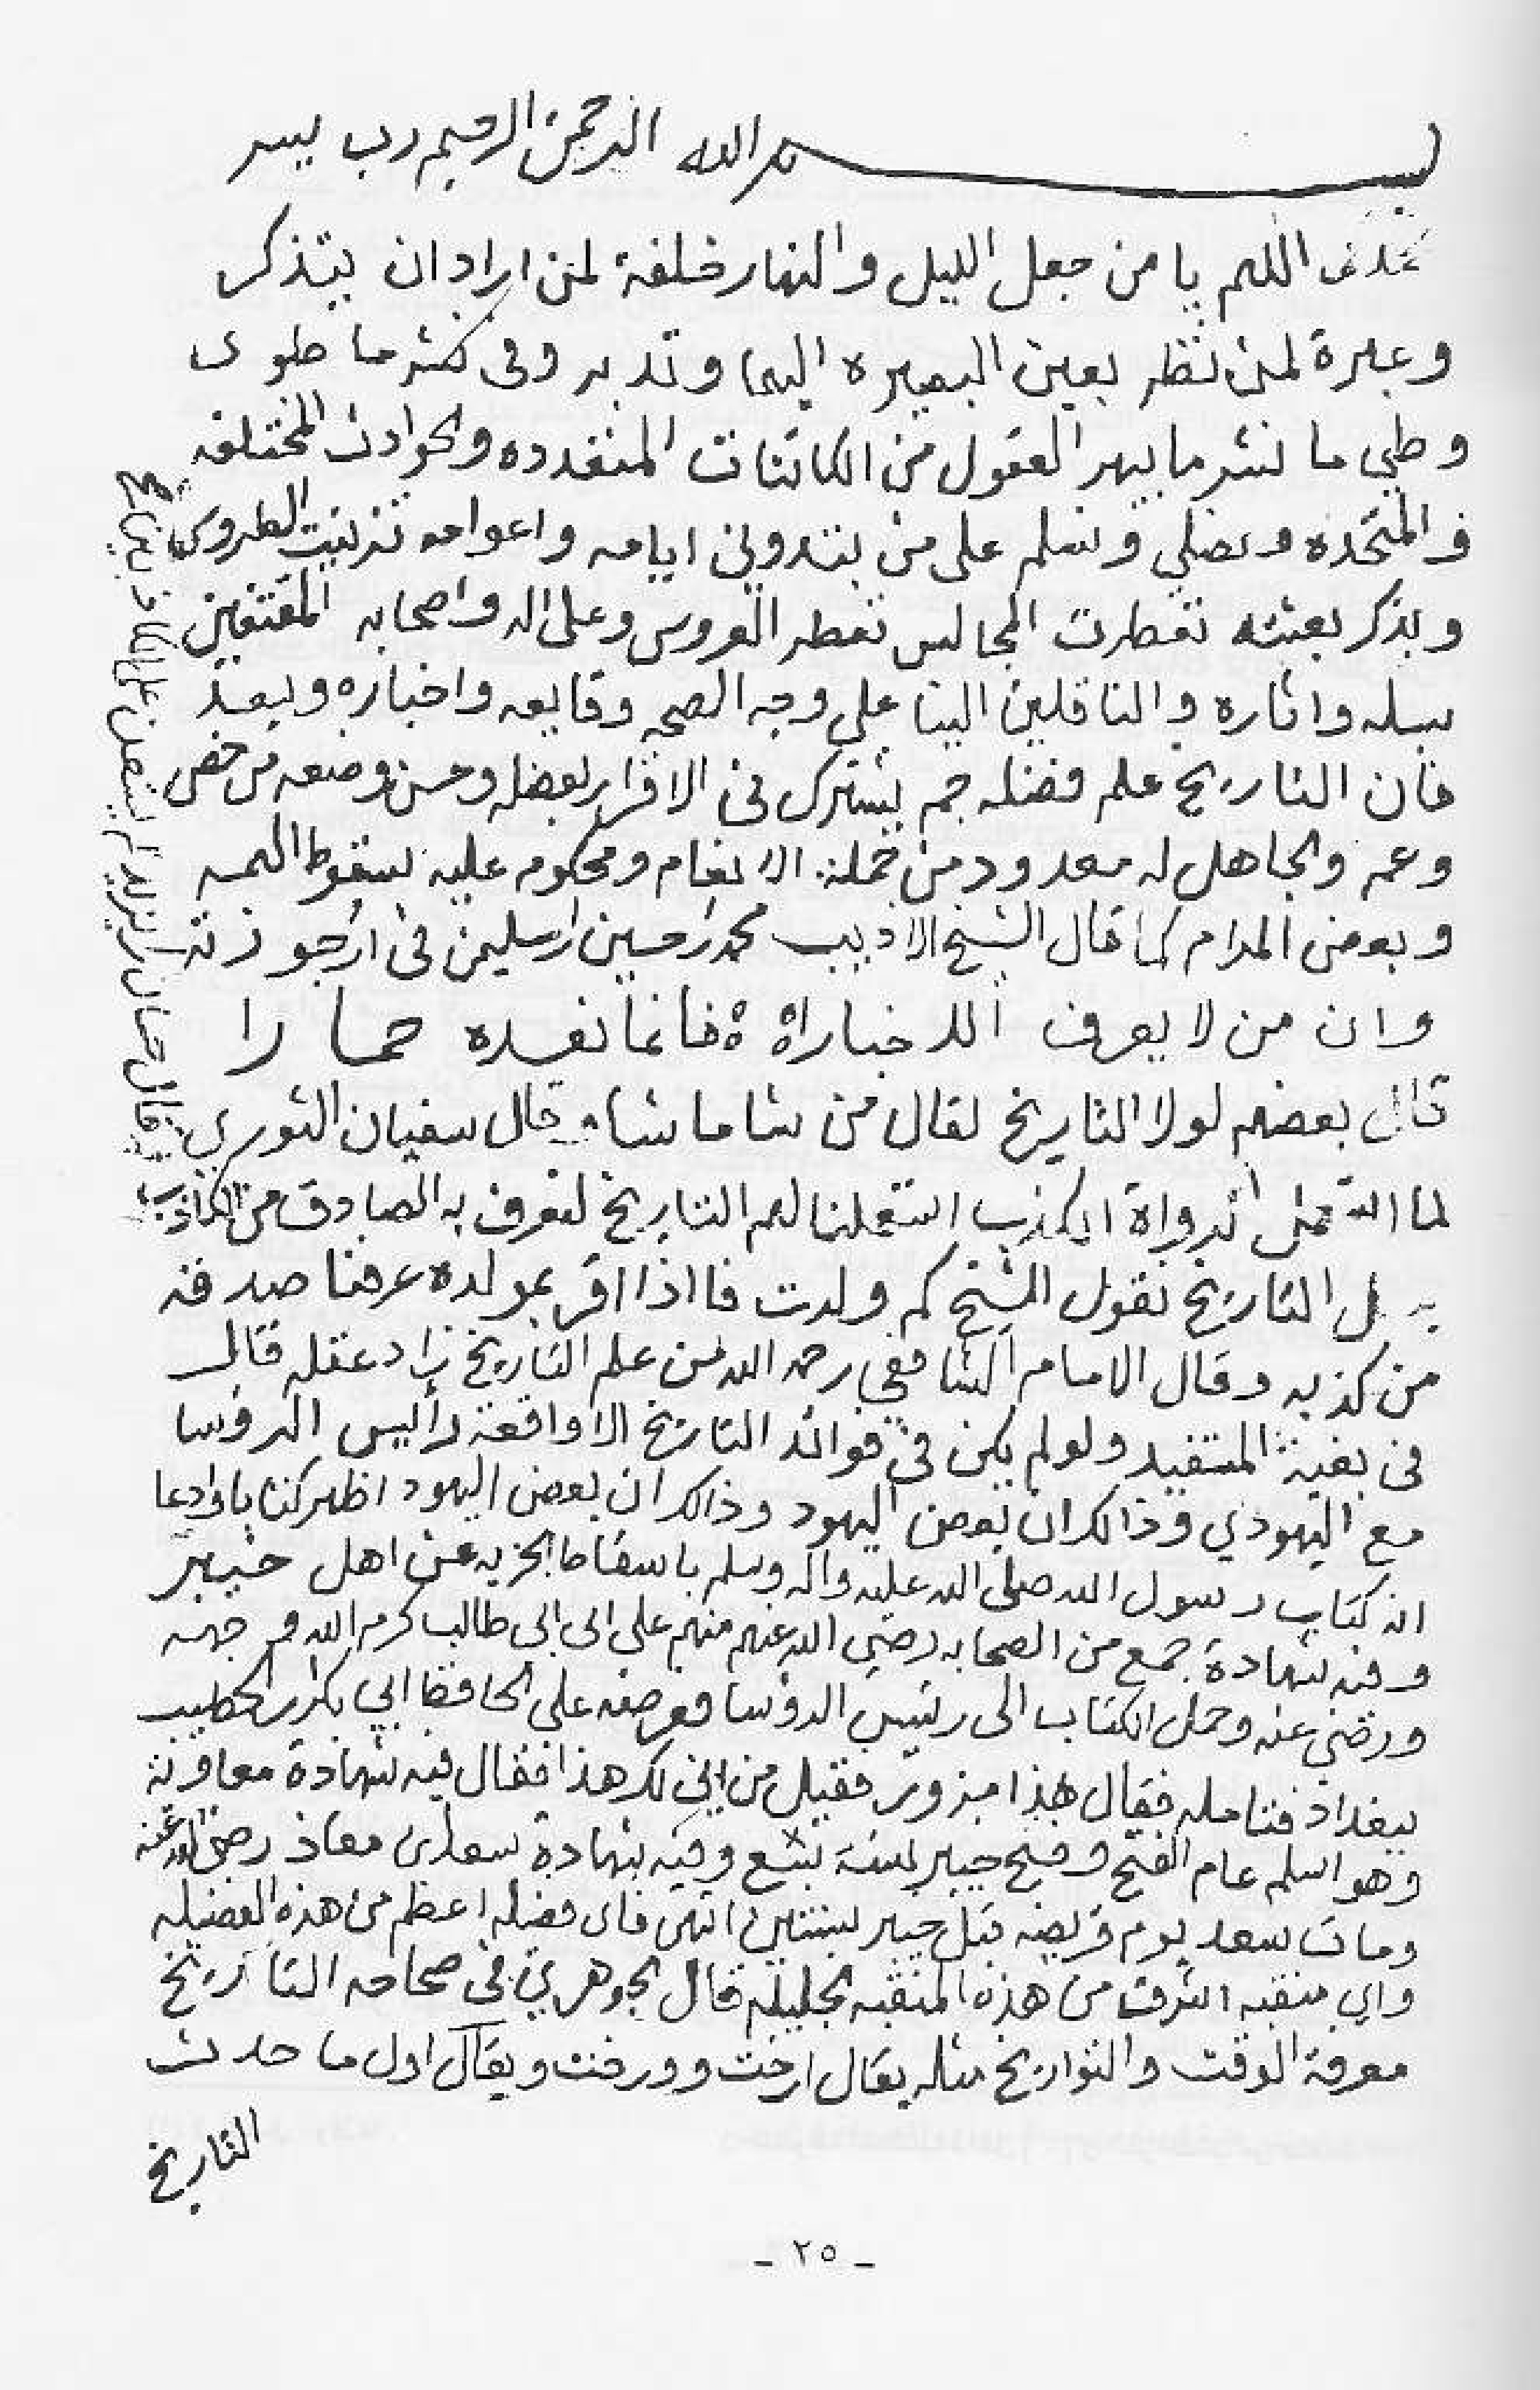 بسم الله الرحمن الرحيم رب يسر
اللهم يا من جعل الليل والنهار خلفة لمن اراد ان يتذكر
وعبرة لمن نظر بعين البصيره اليها وتدبر وفى نشر ما طوى
وطي ما نشر ما يبهر العقول من الكائنات المتعدده والحوادث المختلفه
والمتحده ونصلي ونسلم على من بتدوين ايامه واعوامه تزينت الطروس
وبذكر بعثته تعطرت المجالس تعطر العروس وعلى اله واصحابه المقتفين
سبله واثاره والناقلين الينا على وجه الصحه وقايعه واخباره وبعد
فان التاريخ علم فضله جم يشترك في الاقرار بفضله وحسن وصفه من خص
وعم والجاهل له معدود من جملة الانعام ومحكوم عليه بسقوط الهمه
وبعض المرام كما قال الشيخ الاديب محمد بن حسين بن سليمن في ارجوزته
وان من لا يعرف الاخبارا فانما نعده حمارا
قال بعضهم لولا التاريخ لقال من شا ما شا وقال سفيان الثوري
لما استعمل الرواة الكذب استعملنا لهم التاريخ لنعرف به الصادق من الكاذب
التاريخ نقول للشيخ كم ولدت فاذا اقر بمولده عرفنا صدقه
من كذبه وقال الامام الشافعي رحمه الله من علم التاريخ زاد عقله قال
في بغية المستفيد ولو لم يكن في فوائد التاريخ الا واقعة رائيس الروسا
مع اليهودي وذالك ان بعض اليهود وذالك ان بعض اليهود اظهر كتابا وادعا
انه كتاب رسول الله صلى الله عليه واله وسلم باسقاط الجزيه عن اهل خيبر
وفيه شهادة جمع من الصحابه رضي الله عنهم منهم علي ابن ابي طالب كرم الله وجهه
ورضي عنه وحمل الكتاب الى رئيس الروسا فعرضه على الحافظ ابي بكر الخطيب
ببغداد فتامله فقال هذا مزور فقيل من اين لك هذا فقال فيه شهادة معاوية
وهو اسلم عام الفتح وفتح خيبر لسنة سبع وفيه شهادة سعد بن معاذ رضي الله عنه
ومات سعد يوم قريضه قبل خيبر بسنتين انتهى فاى فضيله اعظم من هذه الفضيله
واي منقبه اشرف من هذه المنقبه الجليله قال الجوهري في صحاحه التاريخ
معرفة الوقت والتواريخ مثله يقال ارخت وورخت ويقال اول ما حدث
التاريخ
- ٢٥ -